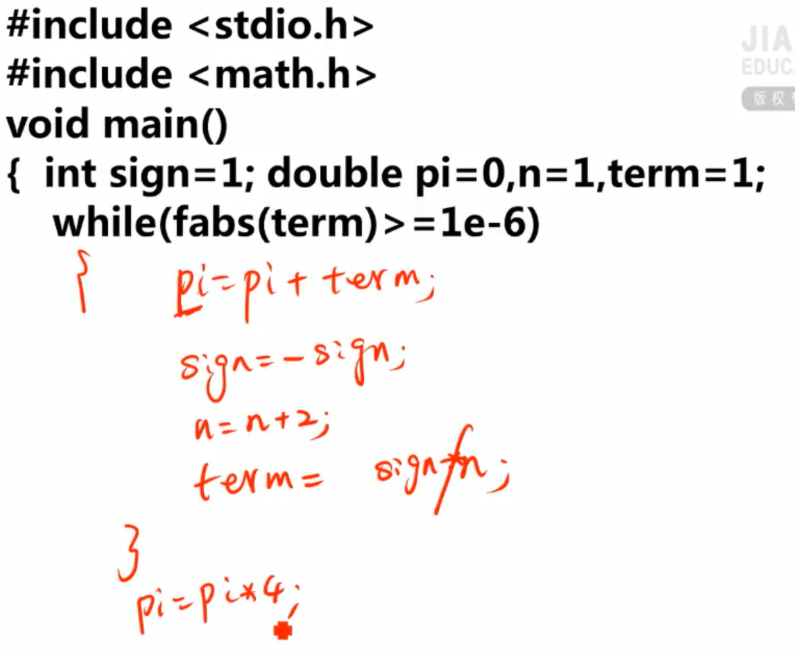 #include <stdio.h>
JIA
#include <math.h>
EDUC
版权
void main()
{ int sign=1; double pi=0,n=1,term=1;
while(fabs(term)>=1e-6)
{ pi=pi+term;
sign=-sign;
n=n+2;
term= sign/n;
}
pi=pi*4;